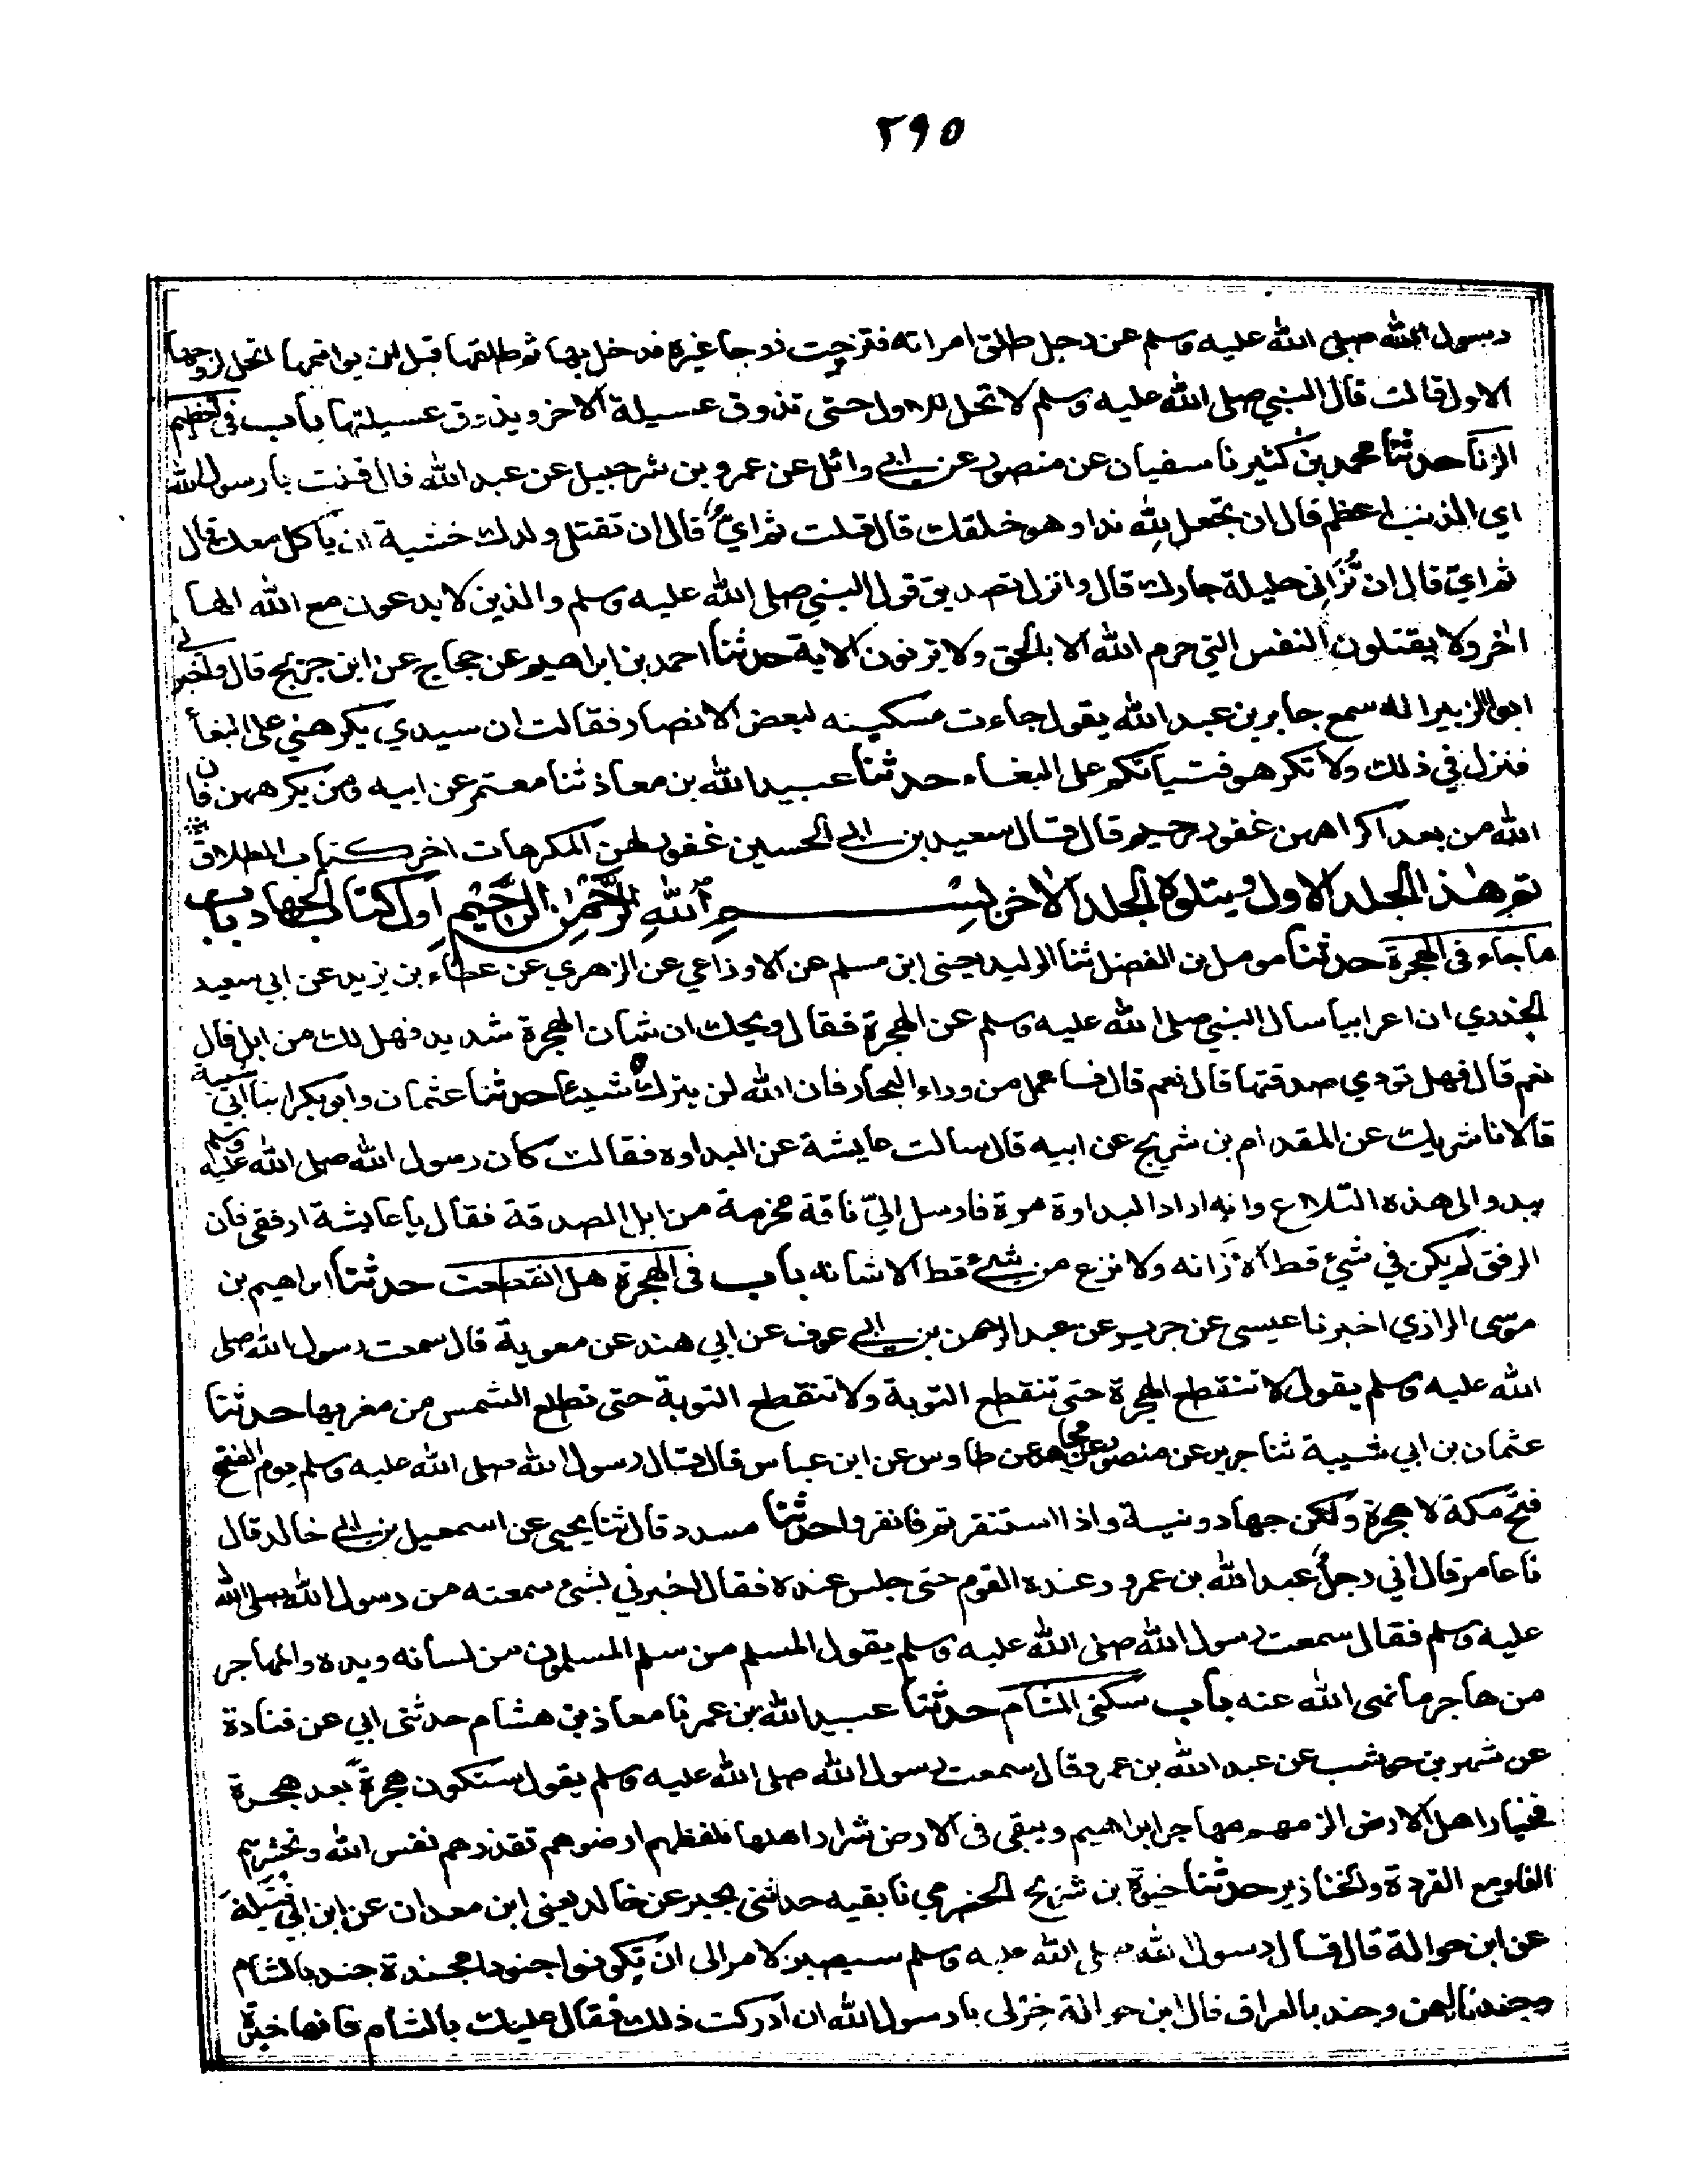 ٢٩٥
رسول الله صلى الله عليه وسلم عن رجل طلق امراته فتزوجت زوجا غيره فدخل بها ثم طلقها قبل ان يواقعها اتحل لزوجها
الاول قالت قال النبي صلى الله عليه وسلم لا تحل للاول حتى تذوق عسيلة الاخر ويذوق عسيلتها باب في تعظيم
الزنا حدثنا محمد بن كثير نا سفيان عن منصور عن ابي وائل عن عمرو بن شرحبيل عن عبد الله قال قلت يا رسول الله
اي الذنب اعظم قال ان تجعل لله ندا وهو خلقك قال قلت ثم اي قال ان تقتل ولدك خشية ان ياكل معك قال
ثم اي قال ان تزاني حليلة جارك قال وانزل تصديق قول النبي صلى الله عليه وسلم والذين لا يدعون مع الله الها
اخر ولا يقتلون النفس التي حرم الله الا بالحق ولا يزنون الاية حدثنا احمد بن ابراهيم عن حجاج عن ابن جريج قال واخبرني
ابو الزبير انه سمع جابر بن عبد الله يقول جاءت مسكينه لبعض الانصار فقالت ان سيدي يكرهني على البغاء
فنزل في ذلك ولا تكرهو فتياتكم على البغاء حدثنا عبيد الله بن معاذ ثنا معتمر عن ابيه ومن يكرههن فان
الله من بعد اكراههن غفور رحيم قال قال سعيد بن ابي الحسين غفور لهن المكرهات اخر كتاب الطلاق
تم هذا الجلد الاول ويتلوه الجلد الاخر بسم الله الرحمن الرحيم اول كتاب الجهاد باب
ما جاء في الهجرة حدثنا مومل بن الفضل ثنا الوليد يعني ابن مسلم عن الاوزاعي عن الزهري عن عطاء بن يزيد عن ابي سعيد
الخدري ان اعرابيا سال النبي صلى الله عليه وسلم عن الهجرة فقال ويحك ان شان الهجرة شديد فهل لك من ابل قال
نعم قال فهل تودي صدقتها قال نعم قال فاعمل من وراء البحار فان الله لن يترك شيئا حدثنا عثمان وابو بكر ابنا ابي شيبة
قالا نا شريك عن المقدام بن شريح عن ابيه قال سالت عايشة عن البداوه فقالت كان رسول الله صلى الله عليه وسلم
يبدو الى هذه التلاع وانه اراد البداوة مرة فارسل الي ناقة محرمة من ابل الصدقة فقال يا عايشة ارفقي فان
الرفق لم يكن في شئ قط الا زانه ولا نزع من شئ قط الا شانه باب في الهجرة هل انقطعت حدثنا ابراهيم بن
موسى الرازي اخبرنا عيسى عن جرير عن عبد الرحمن بن ابي عوف عن ابي هند عن معوية قال سمعت رسول الله صلى
الله عليه وسلم يقول لا تنقطع الهجرة حتى تنقطع التوبة ولا تنقطع التوبة حتى تطلع الشمس من مغربها حدثنا
عثمان بن ابي شيبة ثنا جرير عن منصور عن مجاهد عن طاوس عن ابن عباس قال قال رسول الله صلى الله عليه وسلم يوم الفتح
فتح مكة لا هجرة ولكن جهاد ونية واذا استنفرتم فانفروا حدثنا مسدد قال ثنا يحيى عن اسمعيل بن ابي خالد قال
نا عامر قال اتي رجل عبد الله بن عمرو وعنده القوم حتى جلس عنده فقال اخبرني بشئ سمعته من رسول الله صلى الله
عليه وسلم فقال سمعت رسول الله صلى الله عليه وسلم يقول المسلم من سلم المسلمون من لسانه ويده والمهاجر
من هاجر ما نهى الله عنه باب سكنى الشام حدثنا عبيد الله بن عمر نا معاذ بن هشام حدثني ابي عن قتادة
عن شهر بن حوشب عن عبد الله بن عمرو قال سمعت رسول الله صلى الله عليه وسلم يقول ستكون هجرة بعد هجرة
فخيار اهل الارض الزمهم مهاجر ابراهيم ويبقى في الارض شرار اهلها تلفظهم ارضوهم تقذرهم نفس الله وتحشرهم
النار مع القردة والخنازير حدثنا حيوة بن شريح الحضرمي نا بقيه حدثني بحير عن خالد يعني ابن معدان عن ابن ابي قتيلة
عن ابن حوالة قال قال رسول الله صلى الله عليه وسلم سيصير الامر الى ان تكونوا جنودا مجندة جند بالشام
وجند باليمن وجند بالعراق قال ابن حوالة خر لي يا رسول الله ان ادركت ذلك فقال عليك بالشام فانها خيرة